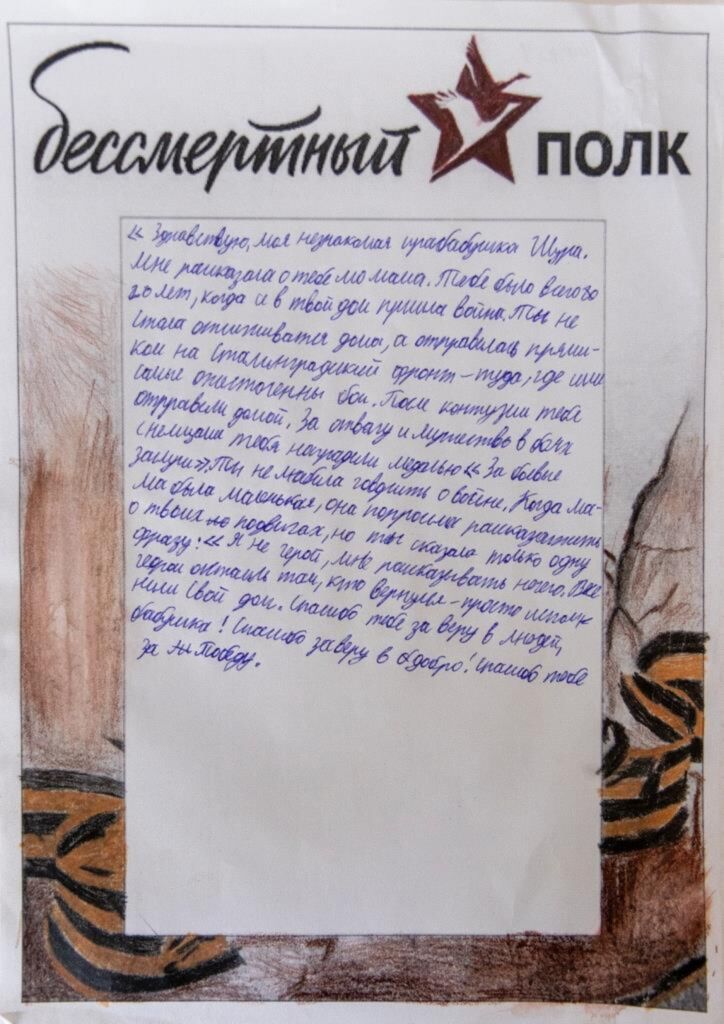 бессмертный полк
«Здравствуй, моя незнакомая прабабушка Шура.
Мне рассказала о тебе мо мама. Тебе было всего
20 лет, когда и в твой дом пришла война. Ты не
стала отсиживатся дома, а отправилась прями-
ком на Сталинградский фронт – туда, где шли
самые ожесточенны бои. После контузии тебя
отправели домой. За отвагу и мужество в боях
с немцами тебя наградили медалью «За боевые
заслуги». Ты не любила говорить о войне. Когда ма-
ма была маленькая, она попросила рассказать
о твоих подвигах, но ты сказала только одну
фразу: «Я не герой, мне рассказывать нечего. Все
герои остались там, кто вернулся – просто
нили свой дом. Спасиб тебе за веру в людей,
бабушка! Спасибо за веру в добро! Спасиб тебе
за Победу.